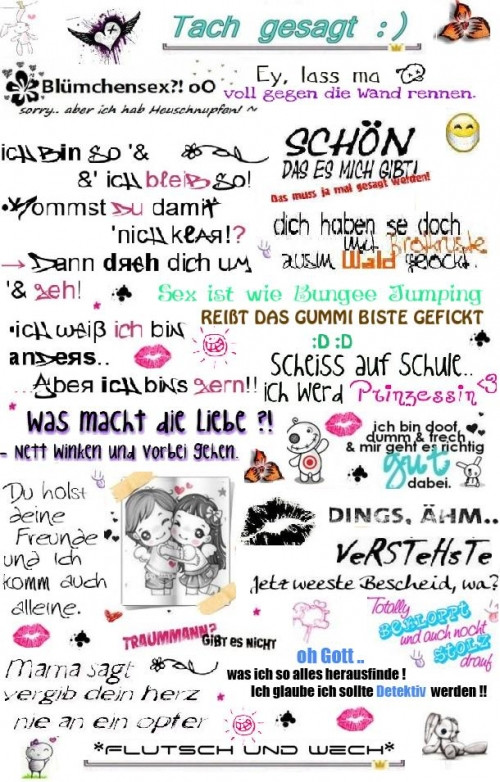 Tach gesagt :)
Blümchensex?! oO
sorry.. aber ich hab Heuschnupfen! ~
Ey, lass ma
voll gegen die Wand rennen.
ich bin so '&
&' ich bleib so!
Kommst du damit
'nich klar!?
→ Dann dreh dich um
'& geh!
SCHÖN
DAS ES MICH GIBT!
Das muss ja mal gesagt werden!
dich haben se doch
mit Brotkruste
ausm Wald gelockt.
Sex ist wie Bungee Jumping
REIßT DAS GUMMI BISTE GEFICKT
•ich weiß ich bin
anders..
...Aber ich bins gern!!
:D :D
Scheiss auf Schule..
ich werd Prinzessin<3
Was macht die Liebe ?!
- Nett winken und vorbei gehen.
ich bin doof,
dumm & frech
& mir geht es richtig
gut
dabei.
Du holst
deine
Freunde
und Ich
komm auch
alleine.
DINGS, ÄHM..
VeRSTeHsTe
Jetz weeste Bescheid, wa?
Totally
BEKLOPPT
und auch noch
STOLZ
drauf
TRAUMMANN?
GIBT ES NICHT
oh Gott ..
was ich so alles herausfinde !
Ich glaube ich sollte Detektiv werden !!
Mama sagt
vergib dein herz
nie an ein opfer
*FLUTSCH UND WECH*